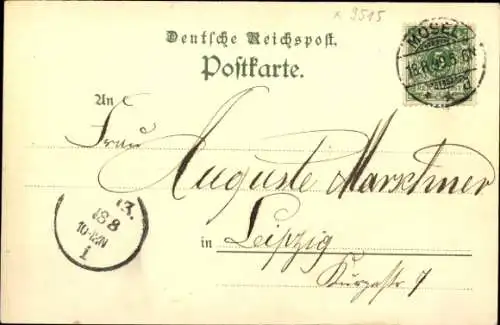 x 9515
Deutsche Reichspost.
Postkarte.
MOSEL
18 8
5-6N
* * a
An
Frau
Auguste Marschner
in Leipzig
Kurzestr 7
13.
18 8
10-12N
1